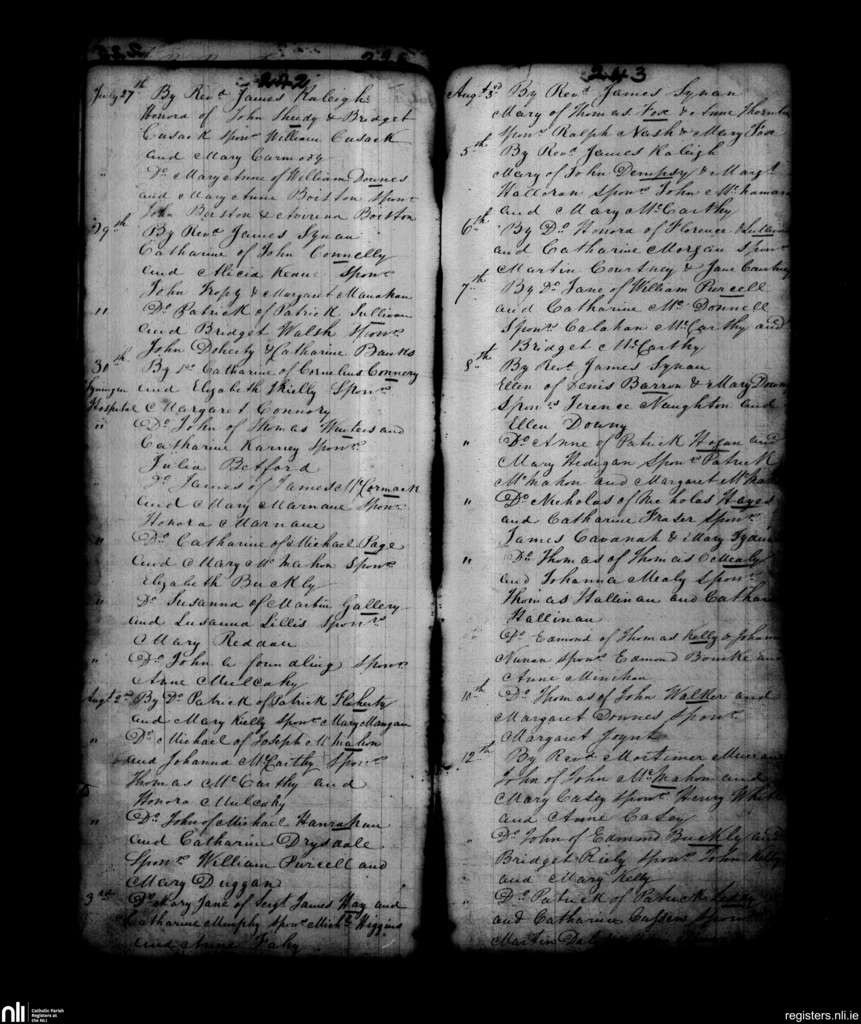 242
July 27th By Revd. James Raleigh
Honora of John Sheedy & Bridget
Cusack sponrs. William Cusack
and Mary Carmody
" Do. Mary Anne of William Downes
and Mary Anne Boiston sponrs.
John Boiston & Boiston
29th By Revd. James Synan
Catharine of John Connelly
and Alicia Keane Sponrs.
John Tropy & Margaret Manahan
" Do. Patrick of Patrick Sullivan
and Bridget Walsh sponrs.
John Doherty & Catharine Banks
30th By Do. Catharine of Cornelius Connory
and Elizabeth Kielly Sponrs.
Hospital Margaret Connory
" Do. John of Thomas Winters and
Catharine Karney sponrs.
Julia Betford
Do. James of James McCormack
and Mary Marnane Sponrs.
Honora Marnane
" Do. Catharine of Michael Page
and Mary McMahon Sponrs.
Elizabeth Buckly
" Do. Susanna of Martin Gallery
and Susanna Lillis Sponrs.
Mary Reddan
" Do. John a foundling Sponrs.
Anne Mulcahy
Augt. 2nd By Do. Patrick of Patrick Flaherty
and Mary Kielly Sponrs. Mary Mangan
" Do. Michael of Joseph McMahon
and Johanna McCarthy Sponrs.
Thomas McCarthy and
Honora Mulcahy
" Do. John of Michael Hanrahan
and Catharine Drysdale
Sponrs. William Purcell and
Mary Duggan
3rd Do. Mary Jane of Sergt. James Hay and
Catharine Murphy Sponrs. Michl. Higgins
and Anne Fahy
243
Augt. 3rd By Revd. James Synan
Mary of Thomas Fox & Anne
Sponrs. Ralph Nash & Mary Fox
5th By Revd. James Raleigh
Mary of John Dempsy & Margt.
Halloran Sponrs. John McNamara
and Mary McCarthy
6th By Do. Honora of Florence Sullivan
and Catharine Morgan Sponrs.
Martin Courtney & Jane Courtney
7th By Do. Jane of William Purcell
and Catharine McDonnell
Sponrs. Calahan McCarthy and
Bridget McCarthy
8th By Revd. James Synan
Ellen of Denis Barron & Mary Downy
Sponrs. Terence Naughton and
Ellen Downy
" Do. Anne of Patrick Hogan and
Mary Hedigan Sponrs. Patrick
McMahon and Margaret
" Do. Nicholas of Nicholas Hayes
and Catharine Fraser Sponrs.
James Cavanah & Mary
" Do. Thomas of Thomas OMealy
and Johanna Mealy Sponrs.
Thomas Hallinan and
Hallinan
Do. Edmond of Thomas Kelly &
Nunan sponrs. Edmond Bourke and
Anne Minehan
10th Do. Thomas of John Walker and
Margaret Downes Sponrs.
Margaret Joynt
12th By Revd. Mortimer
John of John McMahon and
Mary Casey sponrs. Henry
and Anne Casey
Do. John of Edmond Buckley and
Bridget Riely sponrs. John Kelly
and Mary Kelly
Do. Patrick of Patrick
and Catharine
Martin
nli
Catholic Parish
Registers at
the NLI
registers.nli.ie